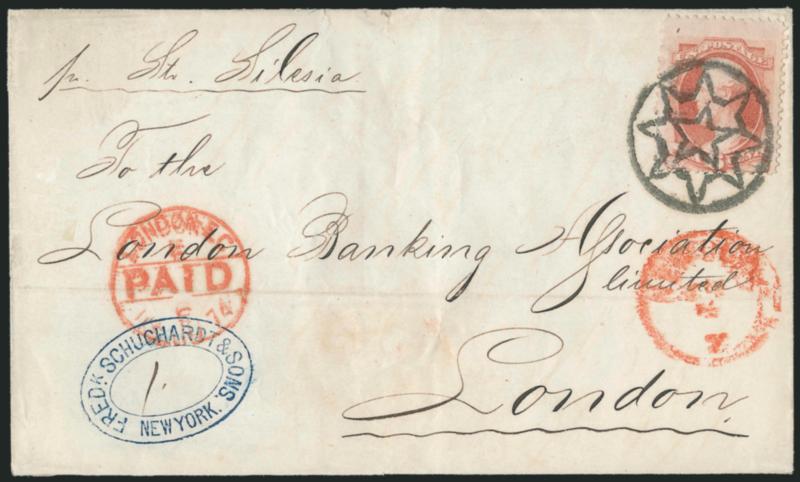 pr. Str. Silesia
POSTAGE
To the
London Banking Association
limited
London
LONDON
PAID
74
FREDK SCHUCHARDT & SONS.
1.
NEW YORK.